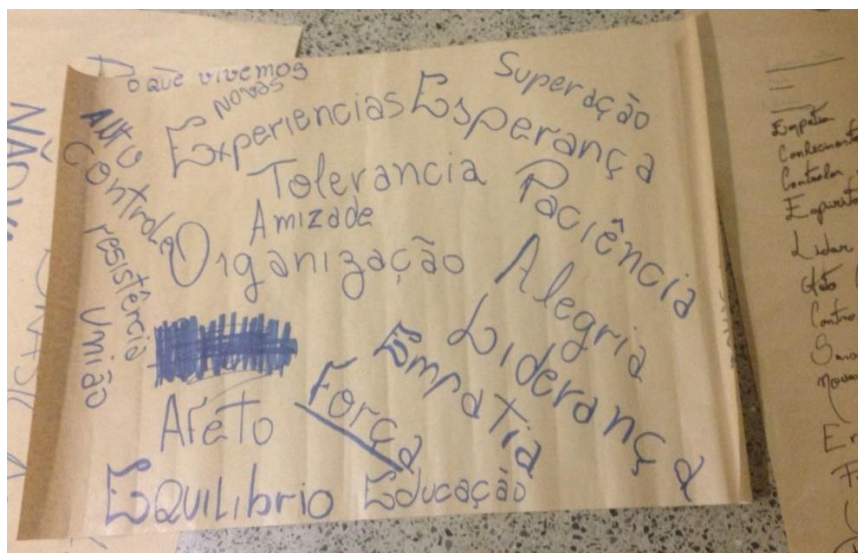 O que vivemos
Novas
Experiencias
Esperança
Superação
Auto
Controle
Tolerancia
Paciência
Amizade
Organização
Alegria
resistência
União
Liderança
Empatia
Força
Afeto
Equilibrio
Educação
NÃO
Empatia
Conhecimento
Controlar
Lidar